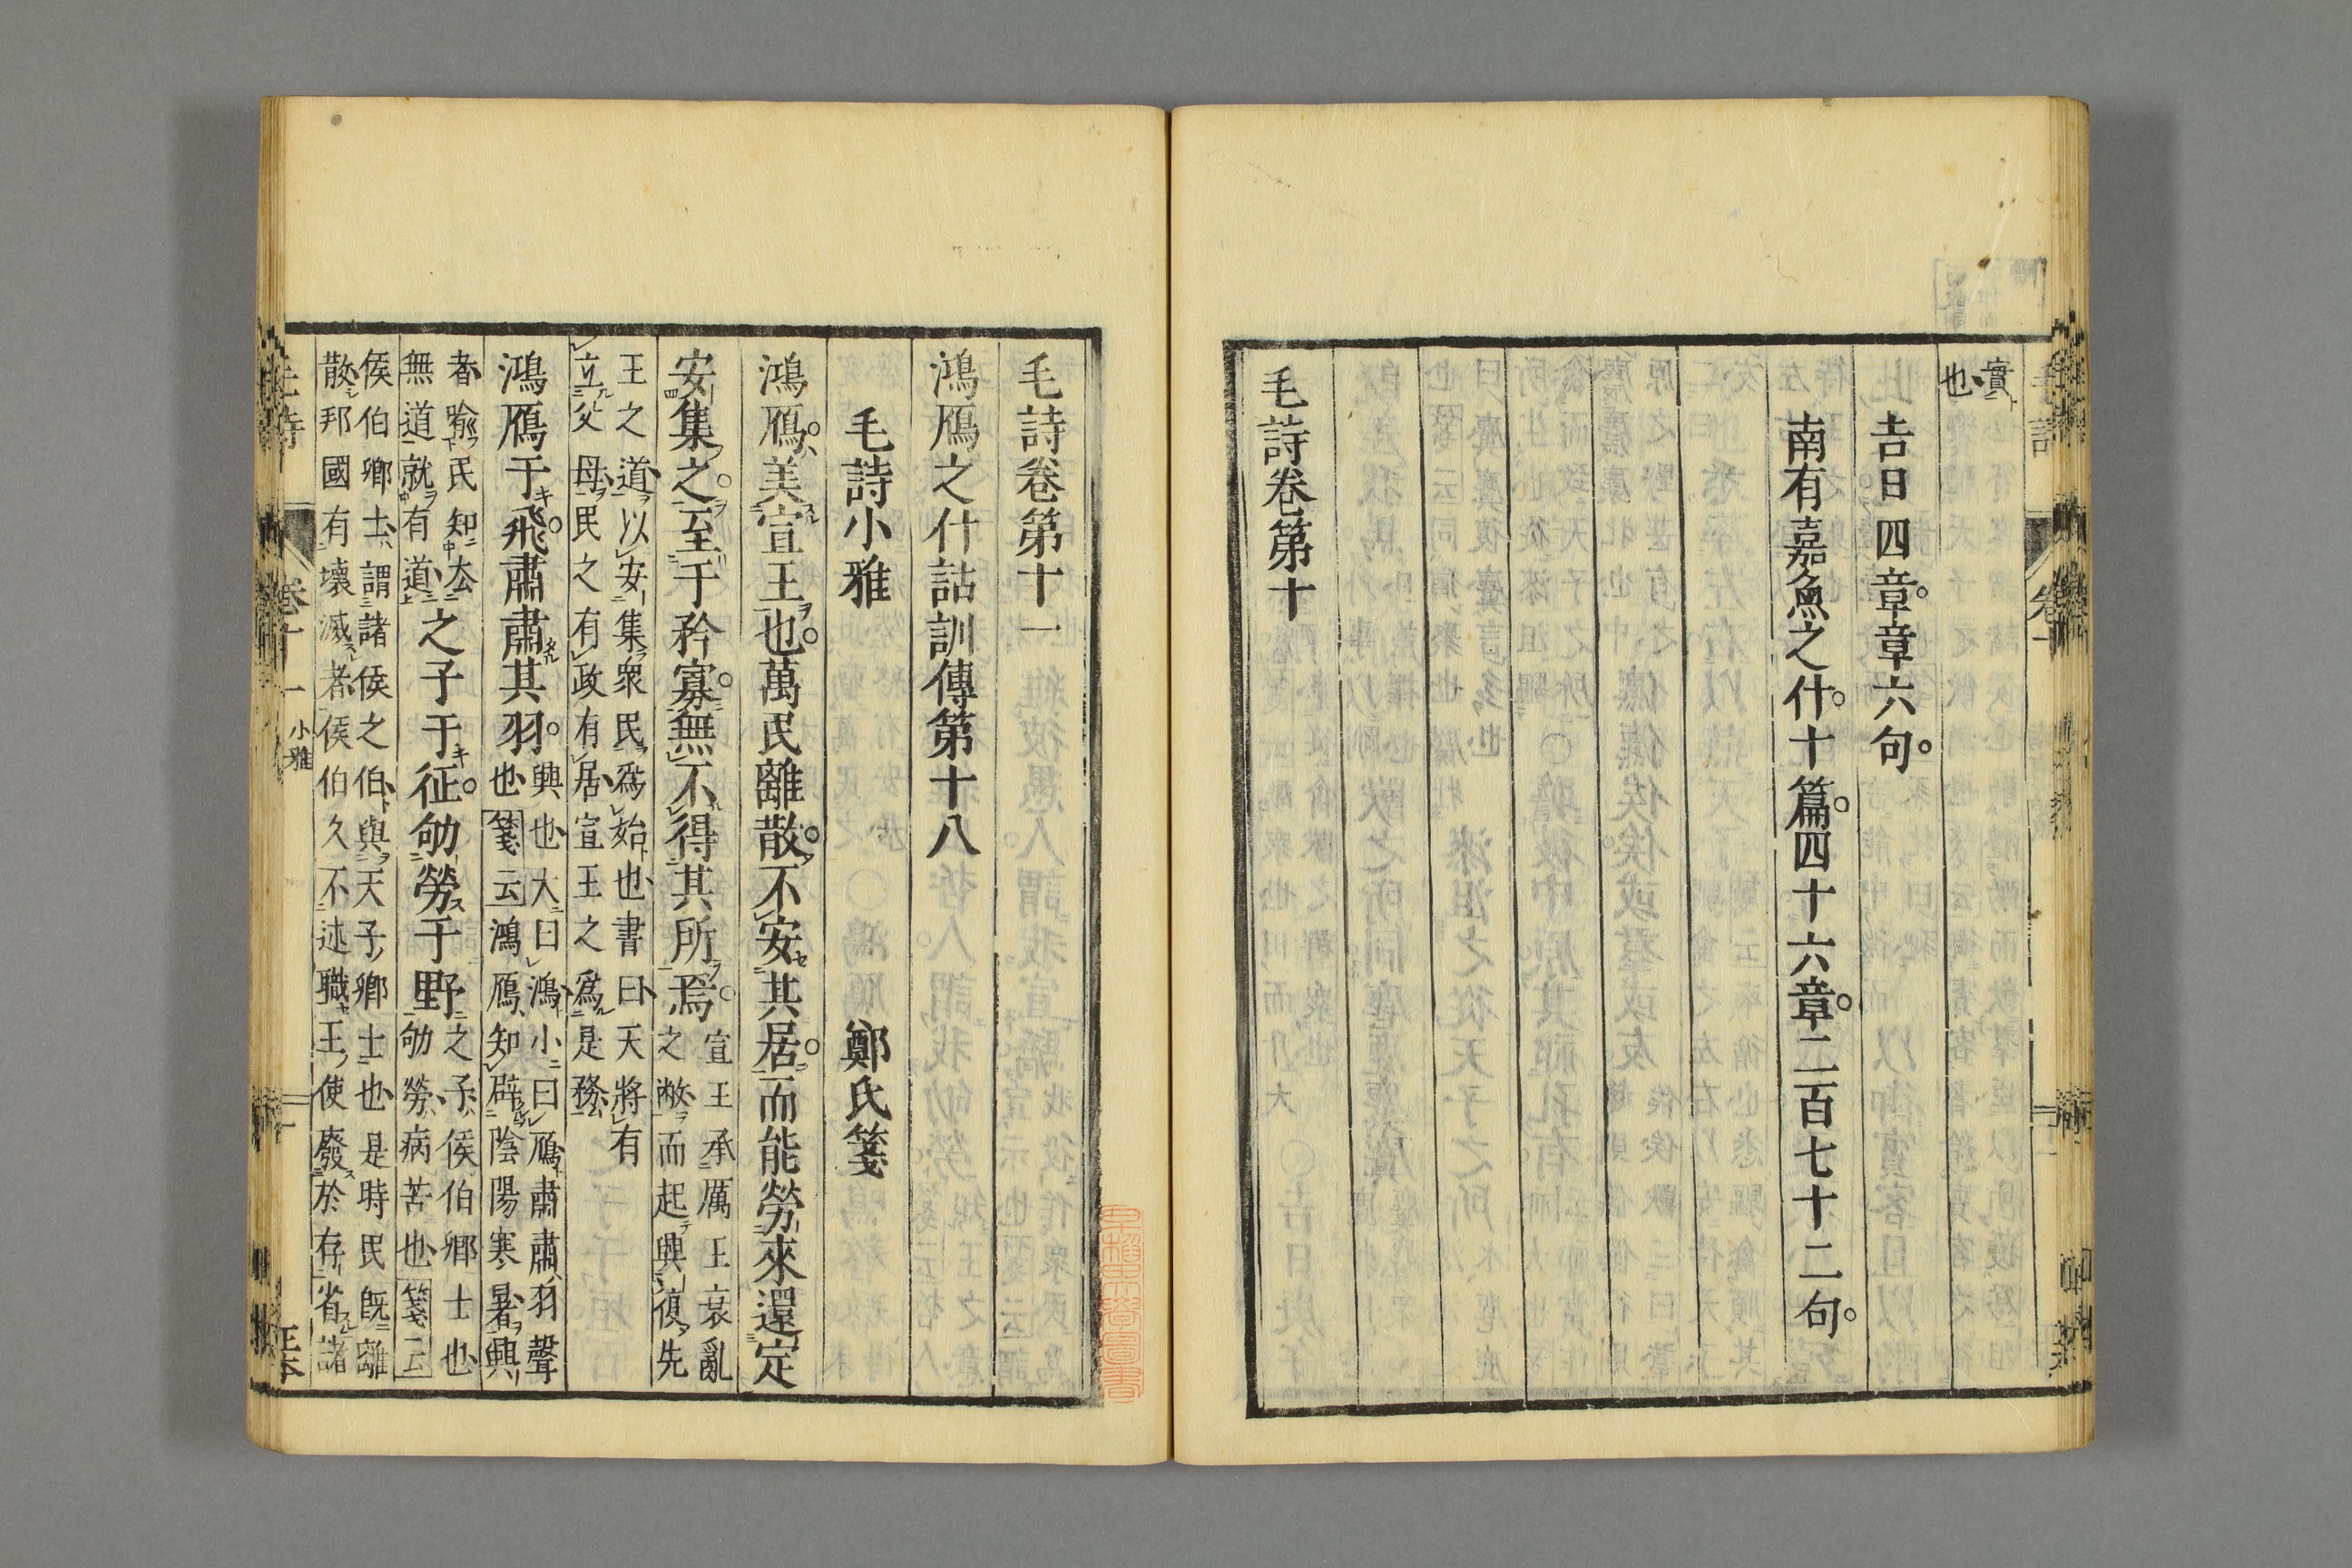 實
也
吉日四章章六句
南有嘉魚之什十篇四十六章二百七十二句
毛詩卷第十
毛詩卷第十一
鴻鴈之什詁訓傳第十八
毛詩小雅 鄭氏箋
鴻鴈美宣王也萬民離散不安其居而能勞來還定
安集之至于矜寡無不得其所焉
宣王承厲王衰亂
之敝而起興復先
王之道以安集衆民爲始也書曰天將有
立父母民之有政有居宣王之爲是務
鴻鴈于飛肅肅其羽
興也大曰鴻小曰鴈肅肅羽聲
也箋云鴻鴈知辟陰陽寒暑興
者喻民知去
無道就有道
之子于征劬勞于野
之子侯伯卿士也
劬勞病苦也箋云
侯伯卿士謂諸侯之伯與天子卿士也是時民旣離
散邦國有壞滅者侯伯久不述職王使廢於存省諸
小雅